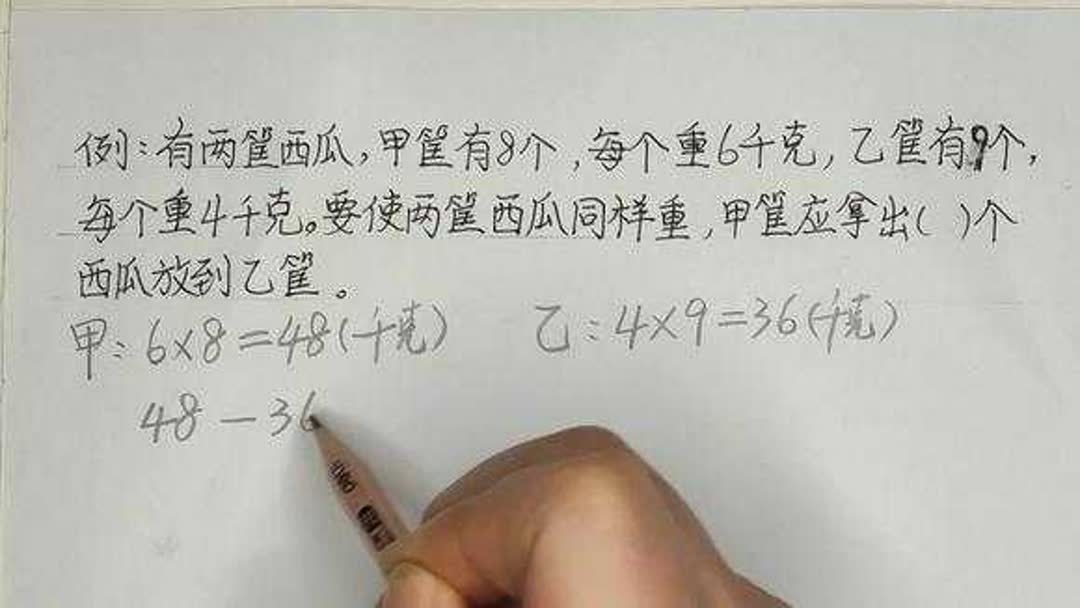 例:有两筐西瓜,甲筐有8个,每个重6千克,乙筐有9个,
每个重4千克。要使两筐西瓜同样重,甲筐应拿出( )个
西瓜放到乙筐。
甲:6×8=48(千克) 乙:4×9=36(千克)
48-36